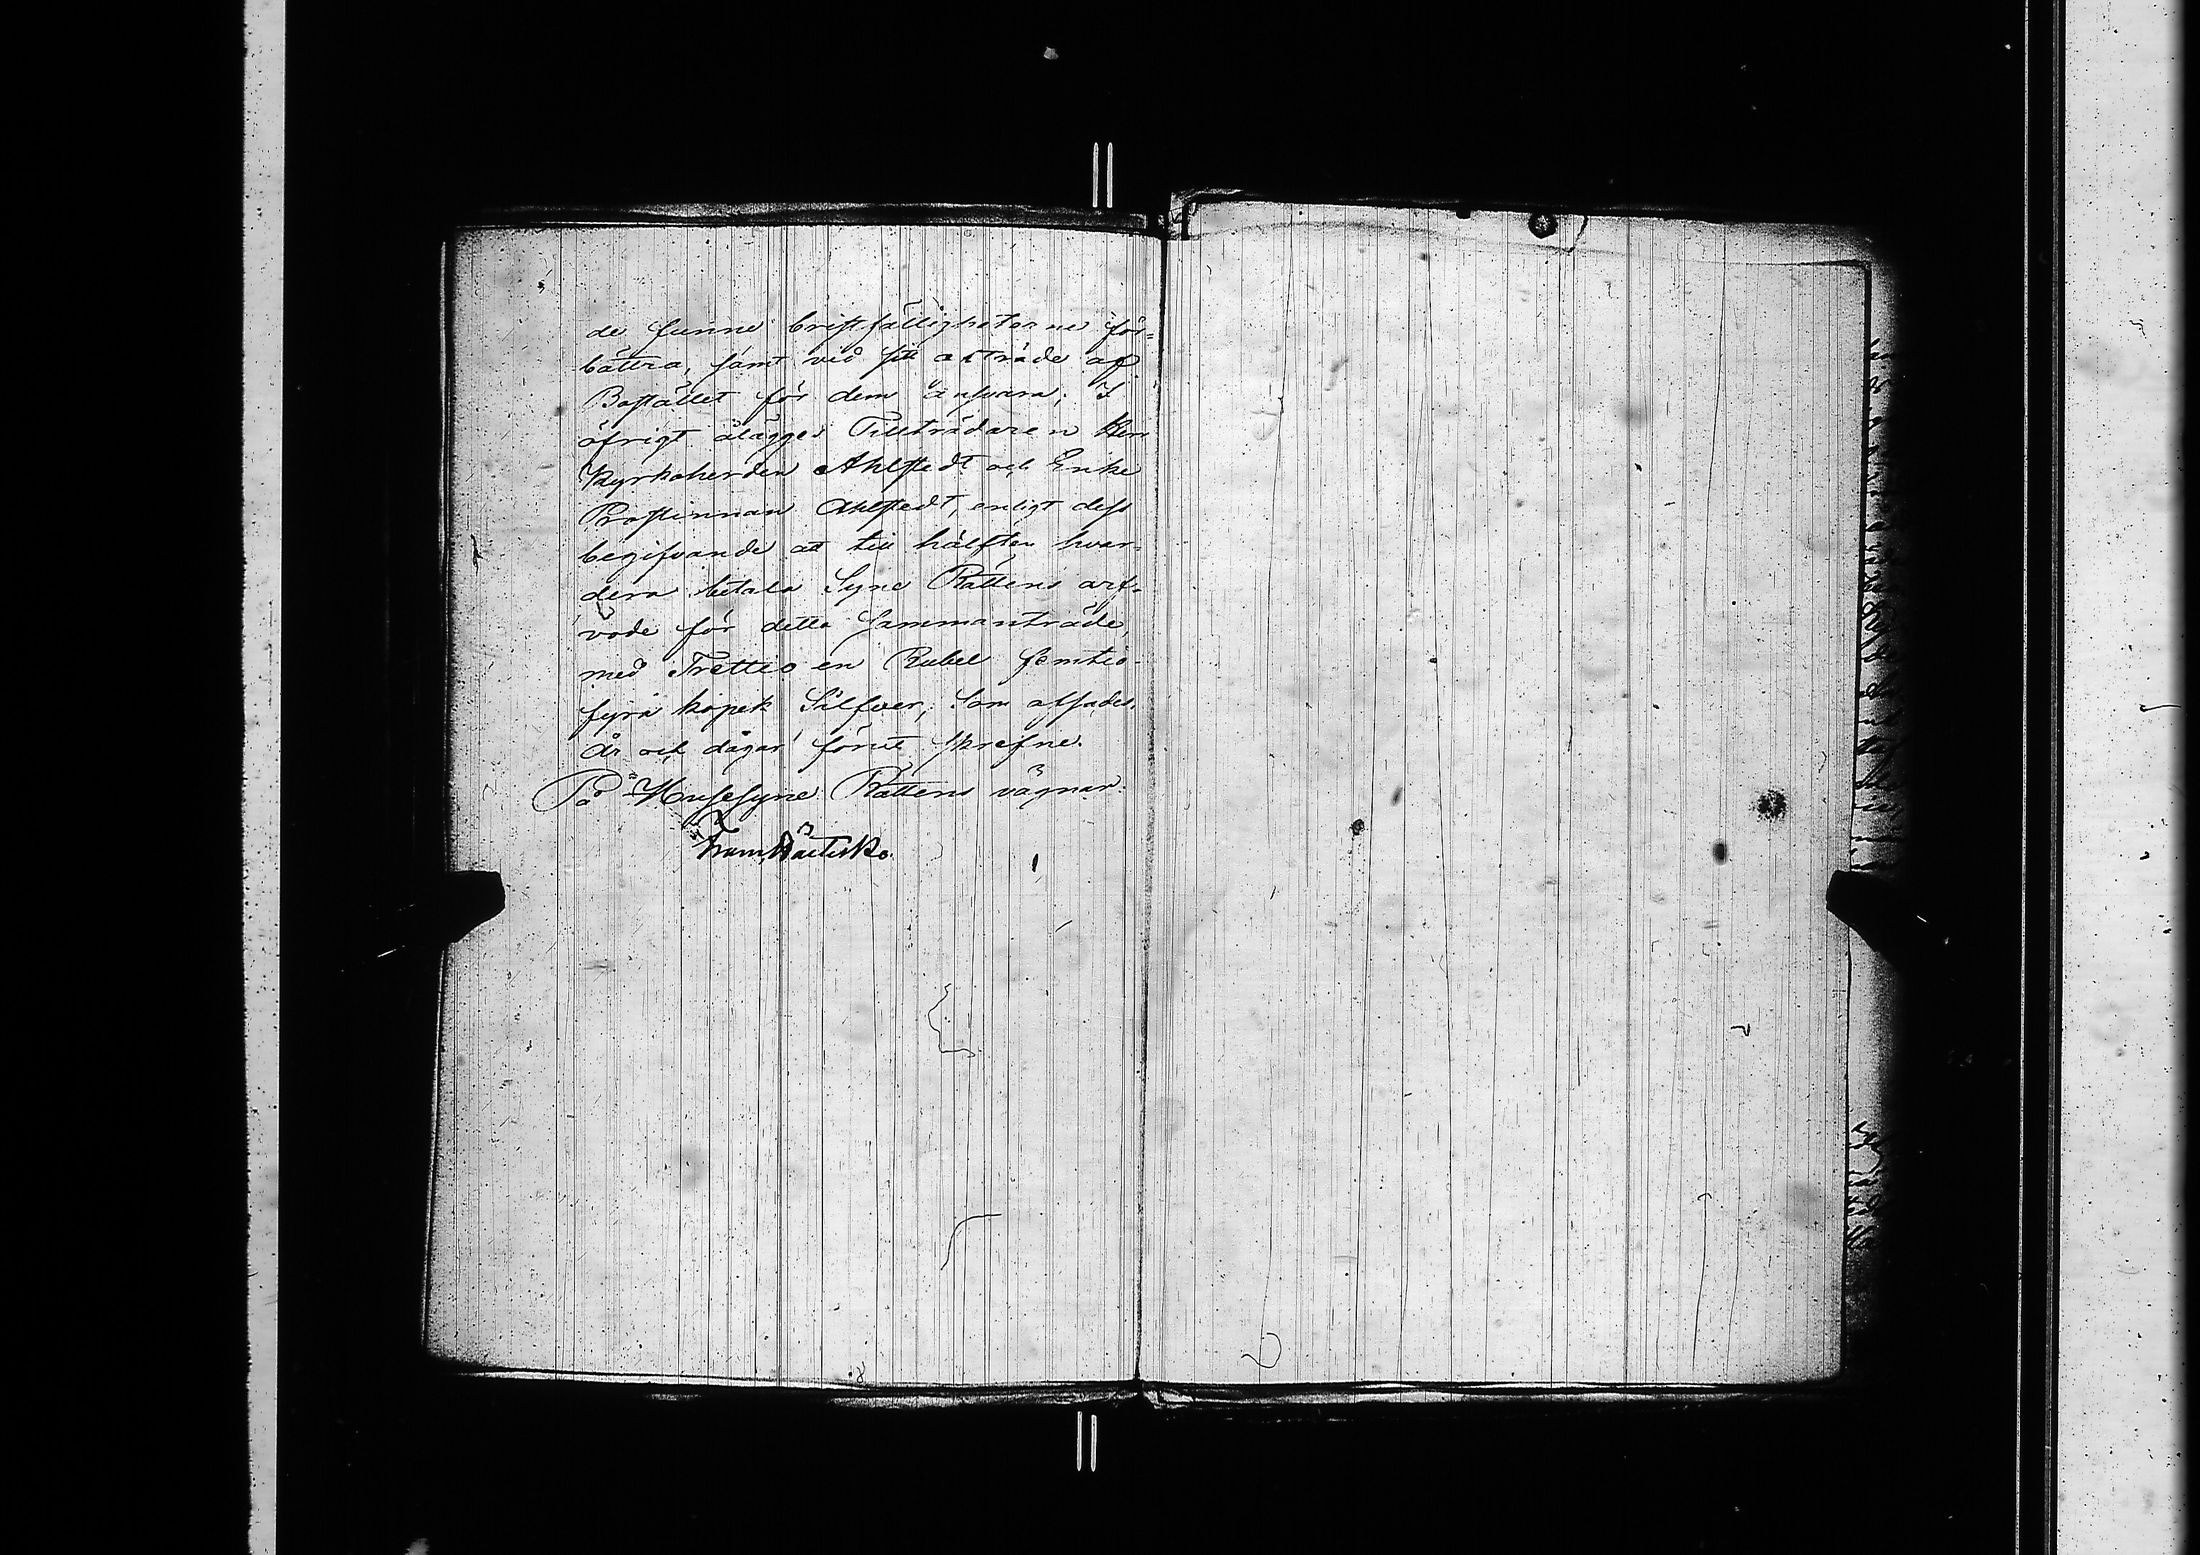 de funne bristfälligheterne för=
bättra, samt vid sitt afträde af
Bostället för dem ansvara; I
öfrigt ålägges Tillträdaren Herr
Kyrkoherden Ahlstedt och Enke
Prostinnan Ahlstedt, enligt dess
begifvande att till hälften hvar-
dera betala Syne Rättens arf-
vode för detta sammanträde,
med Trettio en Rubel femtio-
fyra kopek Silfver; Som afsades,
år och dagar förut skrefne.
På Husesyne Rättens vägnar: